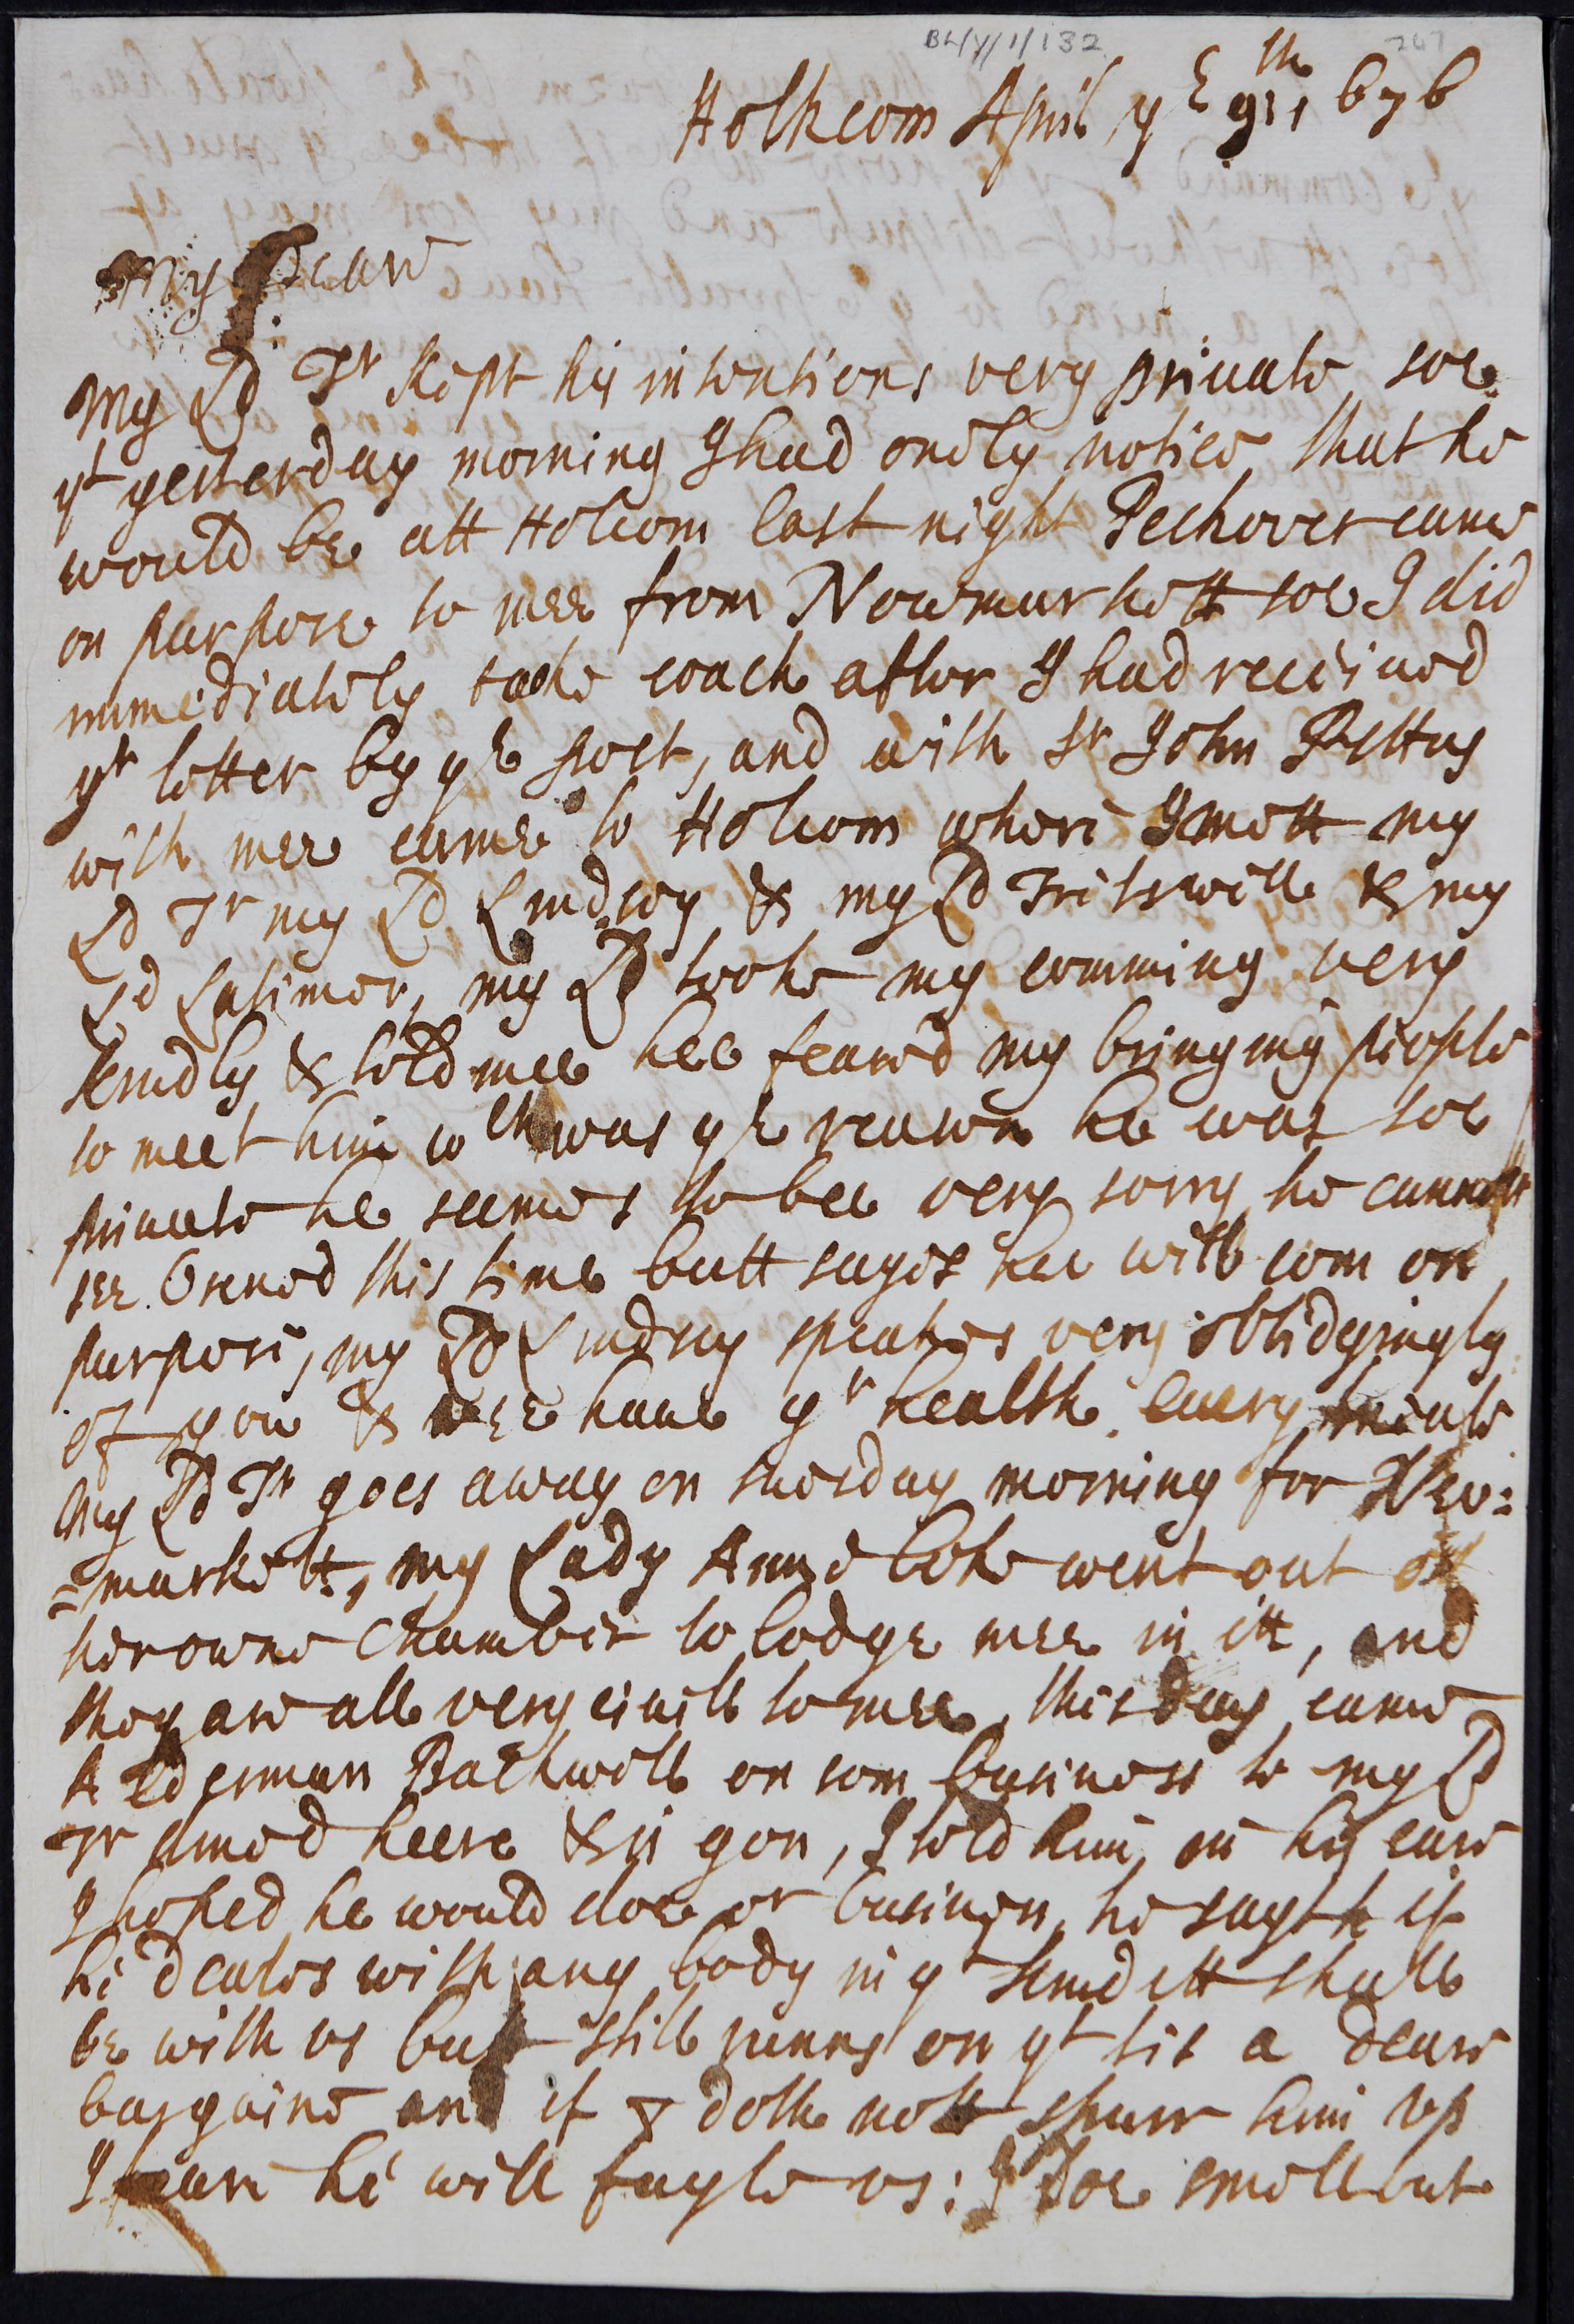 BL/Y/1/132
247
Holkcom April ye 9th, 676
My Deare
My Ld Tr kept his intentions very private soe
yt yesterday morning I had onely notice that he
would be att Holcom last night Peckover came
on purpose to mee from Newmarkett soe I did
immediately take coach after I had received
yr letter by ye post, and with Sr John Pettus
with mee came to Holcom where I mett my
Ld Tr my Ld Lindsey & my Ld Friswill & my
Ld Latimer, my Ld tooke my comming very
kindly & told mee hee feared my bringing people
to meet him wch was ye reason he was soe
private he seemes to bee very sorry he cannott
see Oxned this time butt sayes hee will com on
purpose, my Ld Lindsey speakes very oblidgingly
of you & wee have yr health every meale
My Ld Tr goes away on tuesday morning for New:
=markett, my Lady Anne Coke went out of
her owne Chamber to lodge mee in itt, and
they are all very civill to mee, this day came
Alderman Backwell on som business to my Ld
Tr dined heere & is gon, I told him in his eare
I hoped he would doe or business, he sayth if
he deales with any body in yt kind itt shall
be with us but still runns on yt tis a deare
bargaine and if doth nott spurr him up
I feare he will fayle us: I doe smell out